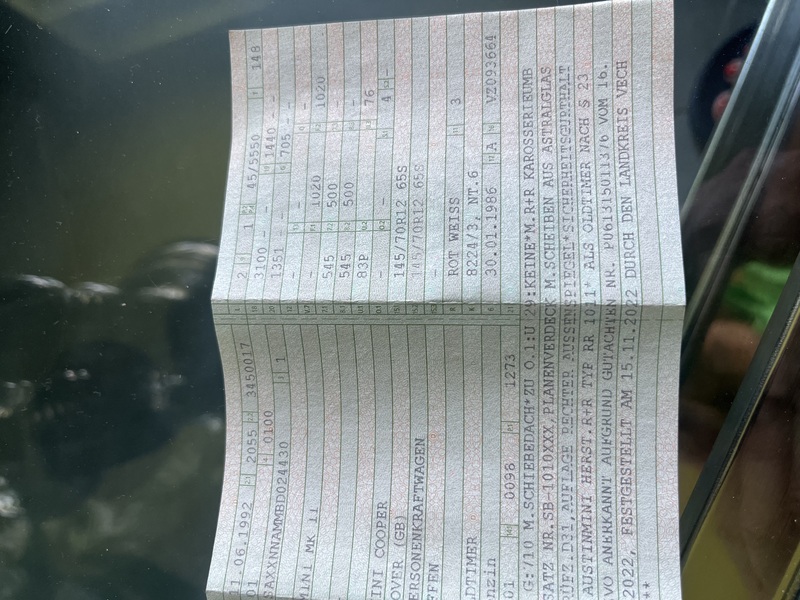 1.06.1992 2055 3450017 2 1 45/5550 148
01 0300 3100 – – 1440 –
SAXXNNAMMBD024430 1 1351 – 705 – –
– – –
MINI MK II 1020 1020
545 500 –
545 500 –
83P – 76
INI COOPER – – 4 –
OVER (GB) 145/70R12 65S
ERSONENKRAFTWAGEN 145/70R12 65S
FFEN –
ROT WEISS 3
LDTIMER 8224/3, NT.6
nzin 30.01.1986 A VZ093664
01 0098 1273
G:710 M.SCHIEBEDACH*ZU O.1:U 29:KEINE*M.R+R KAROSSERIEUMB
SATZ NR.SB-1010XXX,PLANENVERDECK M.SCHEIBEN AUS ASTRALGLAS
UFZ.D31,AUFLAGE RECHTER AUSSENSPIEGEL*SICHERHEITSGURTHALT
AUSTINMINI HERST.R+R TYP RR 1011* ALS OLDTIMER NACH § 23
VO ANERKANNT AUFGRUND GUTACHTEN NR. PU613150113/6 VOM 16.
2022, FESTGESTELLT AM 15.11.2022 DURCH DEN LANDKREIS VECH
**